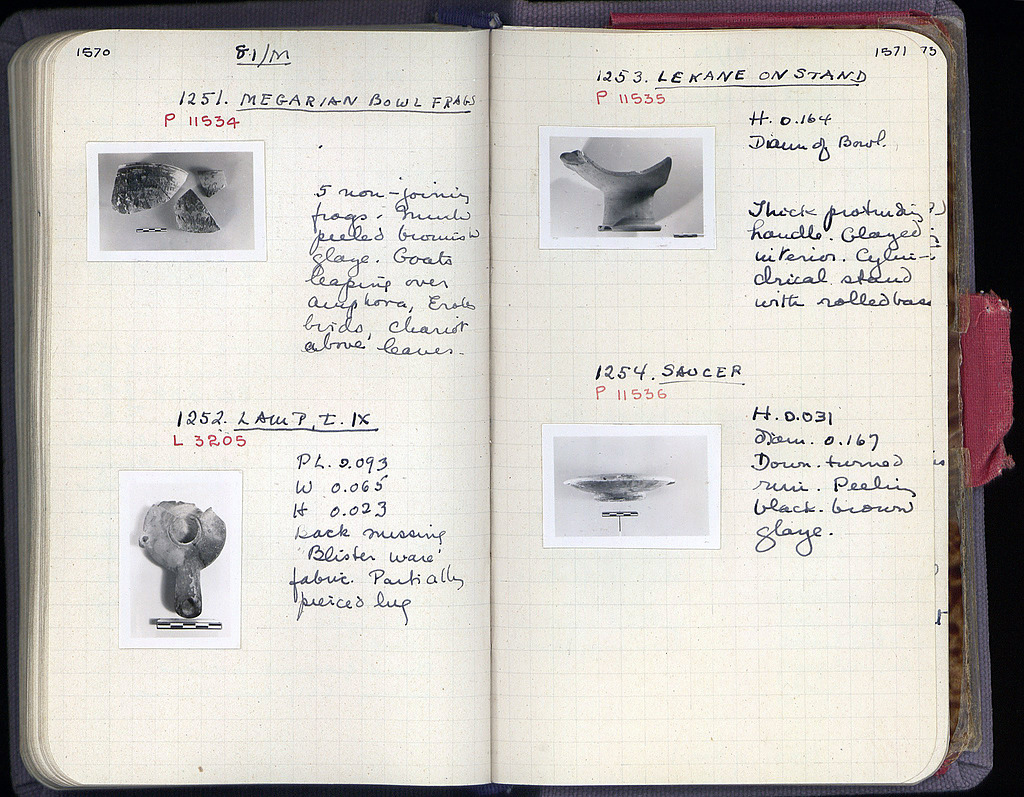 1570
81/M
1251. MEGARIAN BOWL FRAGS
P 11534
5 non-joining
frags. Much
peeled brownish
glaze. Goats
leaping over
amphora, Erotes
birds, chariot
above leaves.
1252. LAMP, T. IX
L 3205
PL. 0.093
W 0.065
H 0.023
Back missing
'Blister ware'
fabric. Partially
pierced lug
1571 73
1253. LEKANE ON STAND
P 11535
H. 0.164
Diam of Bowl.
Thick protruding
handle. Glazed
interior. Cylin-
drical stand
with rolled base
1254. SAUCER
P 11536
H. 0.031
Diam. 0.167
Down-turned
rim. Peeling
black-brown
glaze.